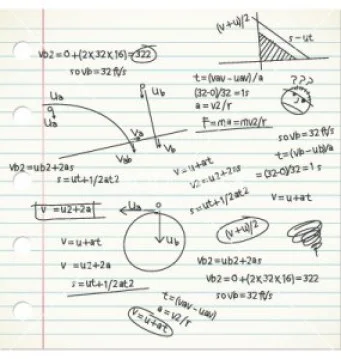 (v+u)/2
s-ut
vb2=0+(2x32x16)=322
so vb=32 ft/s
Ua
a
Ua
P
Ub
t=(vav-uav)/a
(32-0)/32=1s
a=v2/r
F=ma=mv2/r
???
Va
Vab
Vb
so vb=32 ft/s
t=(vb-ub)/a
=(32-0)/32=1s
v=u+at
vb2=ub2+2as
s=ut+1/2at2
v=u+at
v2=u2+2as
s=ut+1/2at2
v=u2+2a
Ua
Ub
(v+u)/2
v=u+at
v=u2+2a
s=ut+1/2at2
vb2=ub2+2as
vb2=0+(2x32x16)=322
so vb=32 ft/s
t=(vav-uav)
a=v2/r
v=u+at